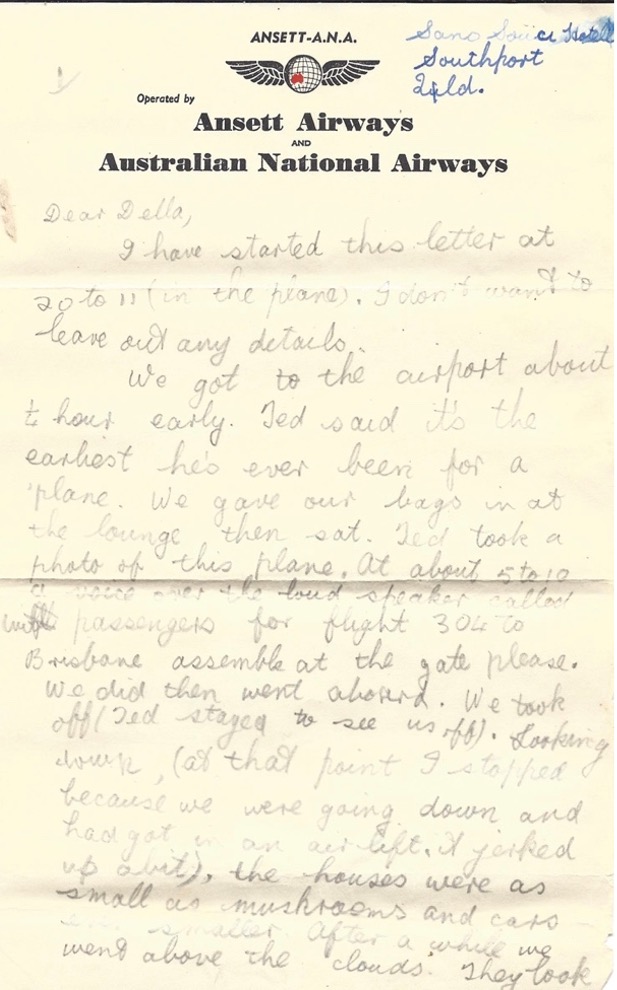 ANSETT-A.N.A.
Sans Souci Hotel
Southport
Qld.
Operated by
Ansett Airways
AND
Australian National Airways
Dear Della,
I have started this letter at
20 to 11 (in the plane). I don't want to
leave out any details.
We got to the airport about
½ hour early. Ted said it's the
earliest he's ever been for a
'plane. We gave our bags in at
the lounge then sat. Ted took a
photo of this plane. At about 5 to 10
a voice over the loud speaker called
passengers for flight 304 to
Brisbane assemble at the gate please.
We did then went aboard. We took
off (Ted stayed to see us off). Looking
down, (at that point I stopped
because we were going down and
had got in an air lift. it jerked
up a bit), the houses were as
small as mushrooms and cars
even smaller. After a while we
went above the clouds. They look